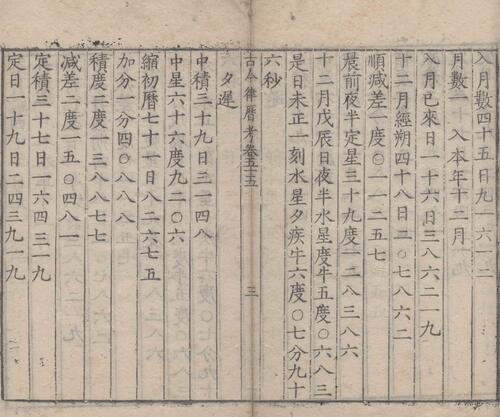 入月數四十五日九一六一二
月數一十入本年十二月
入月已來日一十六日三八六二一九
十二月經朔四十八日二〇七八六二
順減差一度〇一一二五七
晨前夜半定星三十九度一二八三八六
十二月戊辰日夜半水星度牛五度〇六八三
是日未正一刻水星夕疾牛六度〇七分九十
六秒
古今律曆考卷五十五
三
夕遲
中積三十九日三一四八
中星六十六度九二〇六
縮初曆七十一日八二六七五
加分一分四〇八八八
積度二度一三八八七七
減差二度一五〇四八一
定積三十七日一六四三一九
定日一十九日二四三九一九